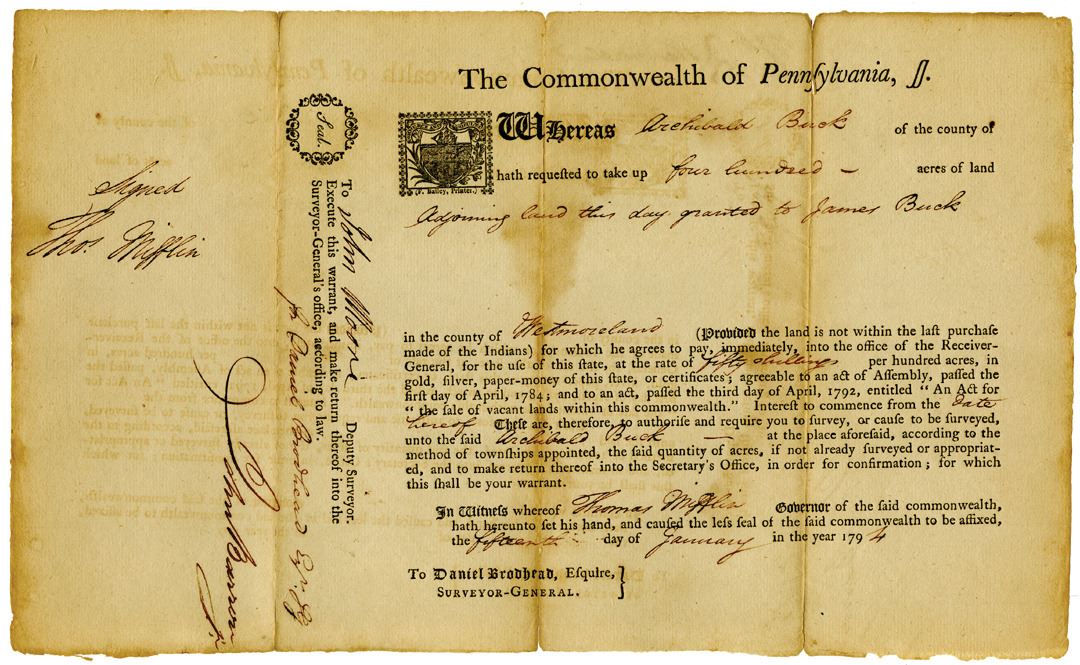 The Commonwealth of Pennſylvania, ſſ.
Whereas Archibald Buck of the county of
(F. Bailey, Printer.)
hath requeſted to take up four hundred - acres of land
Adjoining land this day granted to James Buck
in the county of Westmoreland (Provided the land is not within the laſt purchaſe
made of the Indians) for which he agrees to pay, immediately, into the office of the Receiver-
General, for the uſe of this ſtate, at the rate of fifty shillings per hundred acres, in
gold, ſilver, paper-money of this ſtate, or certificates; agreeable to an act of Aſſembly, paſſed the
firſt day of April, 1784; and to an act, paſſed the third day of April, 1792, entitled “An Act for
“ the ſale of vacant lands within this commonwealth.” Intereſt to commence from the date
hereof Theſe are, therefore, to authoriſe and require you to ſurvey, or cauſe to be ſurveyed,
unto the ſaid Archibald Buck — at the place aforeſaid, according to the
method of townſhips appointed, the ſaid quantity of acres, if not already ſurveyed or appropriat-
ed, and to make return thereof into the Secretary's Office, in order for confirmation; for which
this ſhall be your warrant.
In Witneſs whereof Thomas Mifflin Governor of the ſaid commonwealth,
hath hereunto ſet his hand, and cauſed the leſs ſeal of the ſaid commonwealth to be affixed,
the fifteenth day of January in the year 1794
To Daniel Brodhead, Eſquire,
Surveyor-General.
Seal.
Signed
Thos. Mifflin
To John Moore Deputy Surveyor.
Execute this warrant, and make return thereof into the
Surveyor-General's office, according to law.
Daniel Brodhead
John Barron